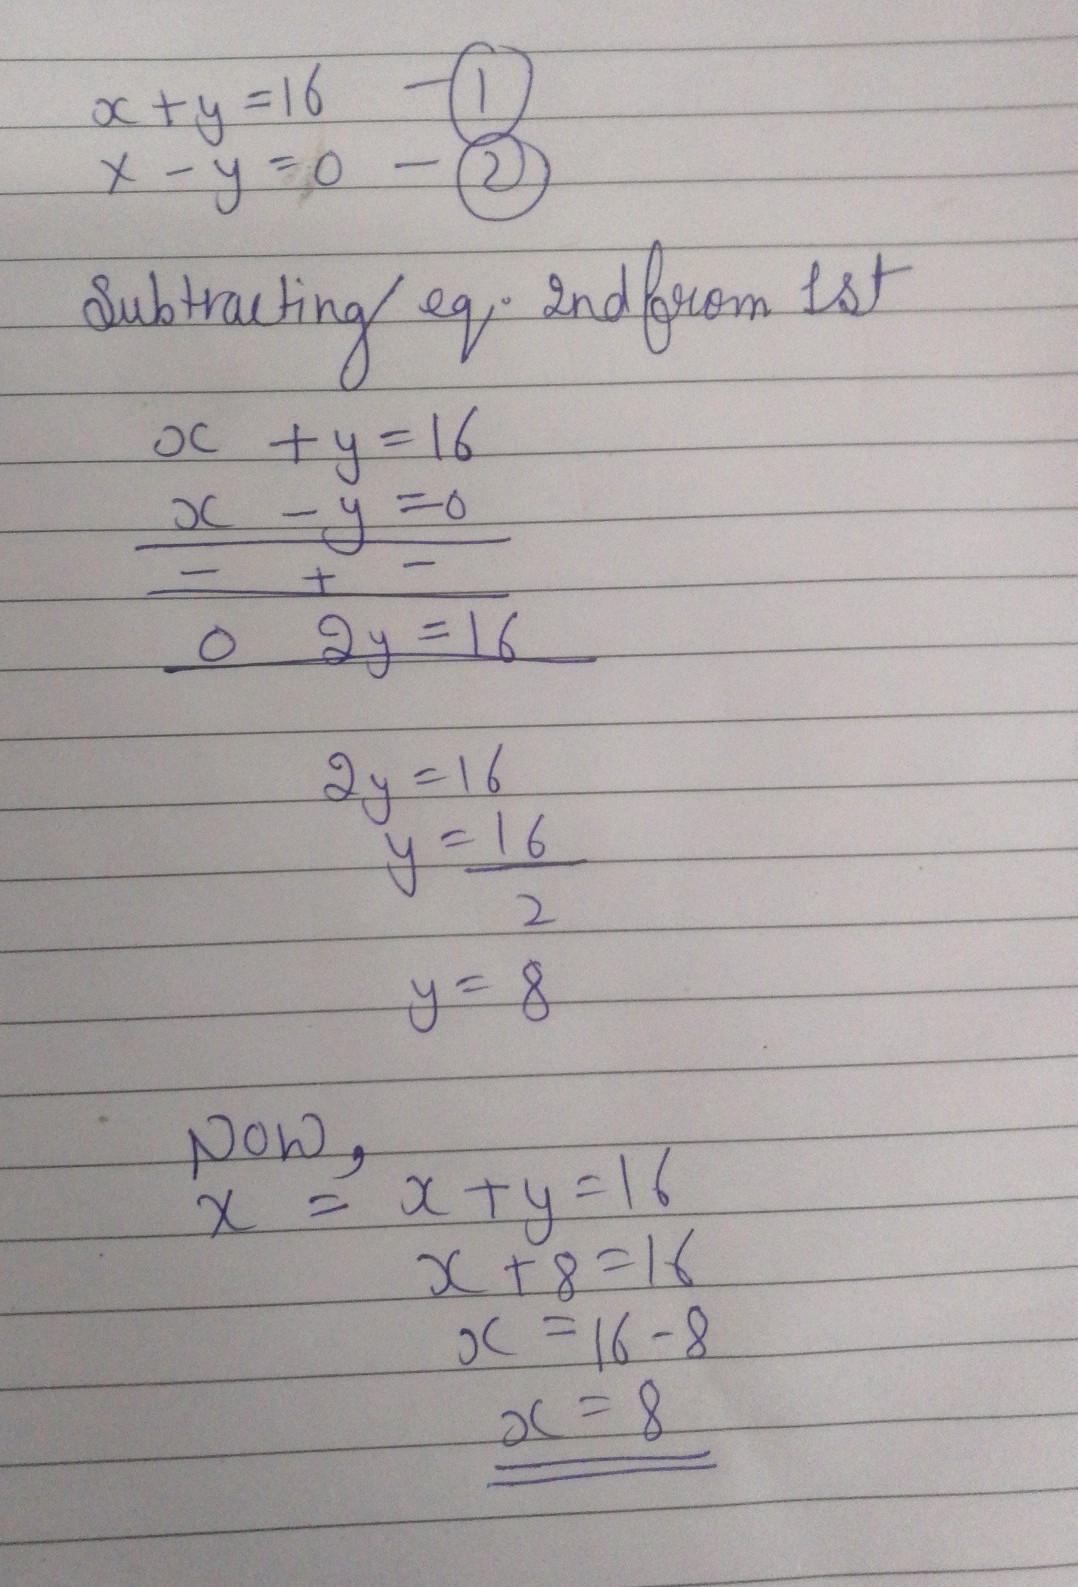 x + y = 16 - 1
x - y = 0 - 2
Subtracting eq. 2nd from 1st
x + y = 16
x - y = 0
- + -
0 2y = 16
2y = 16
y = 16
2
y = 8
Now,
x = x + y = 16
x + 8 = 16
x = 16 - 8
x = 8